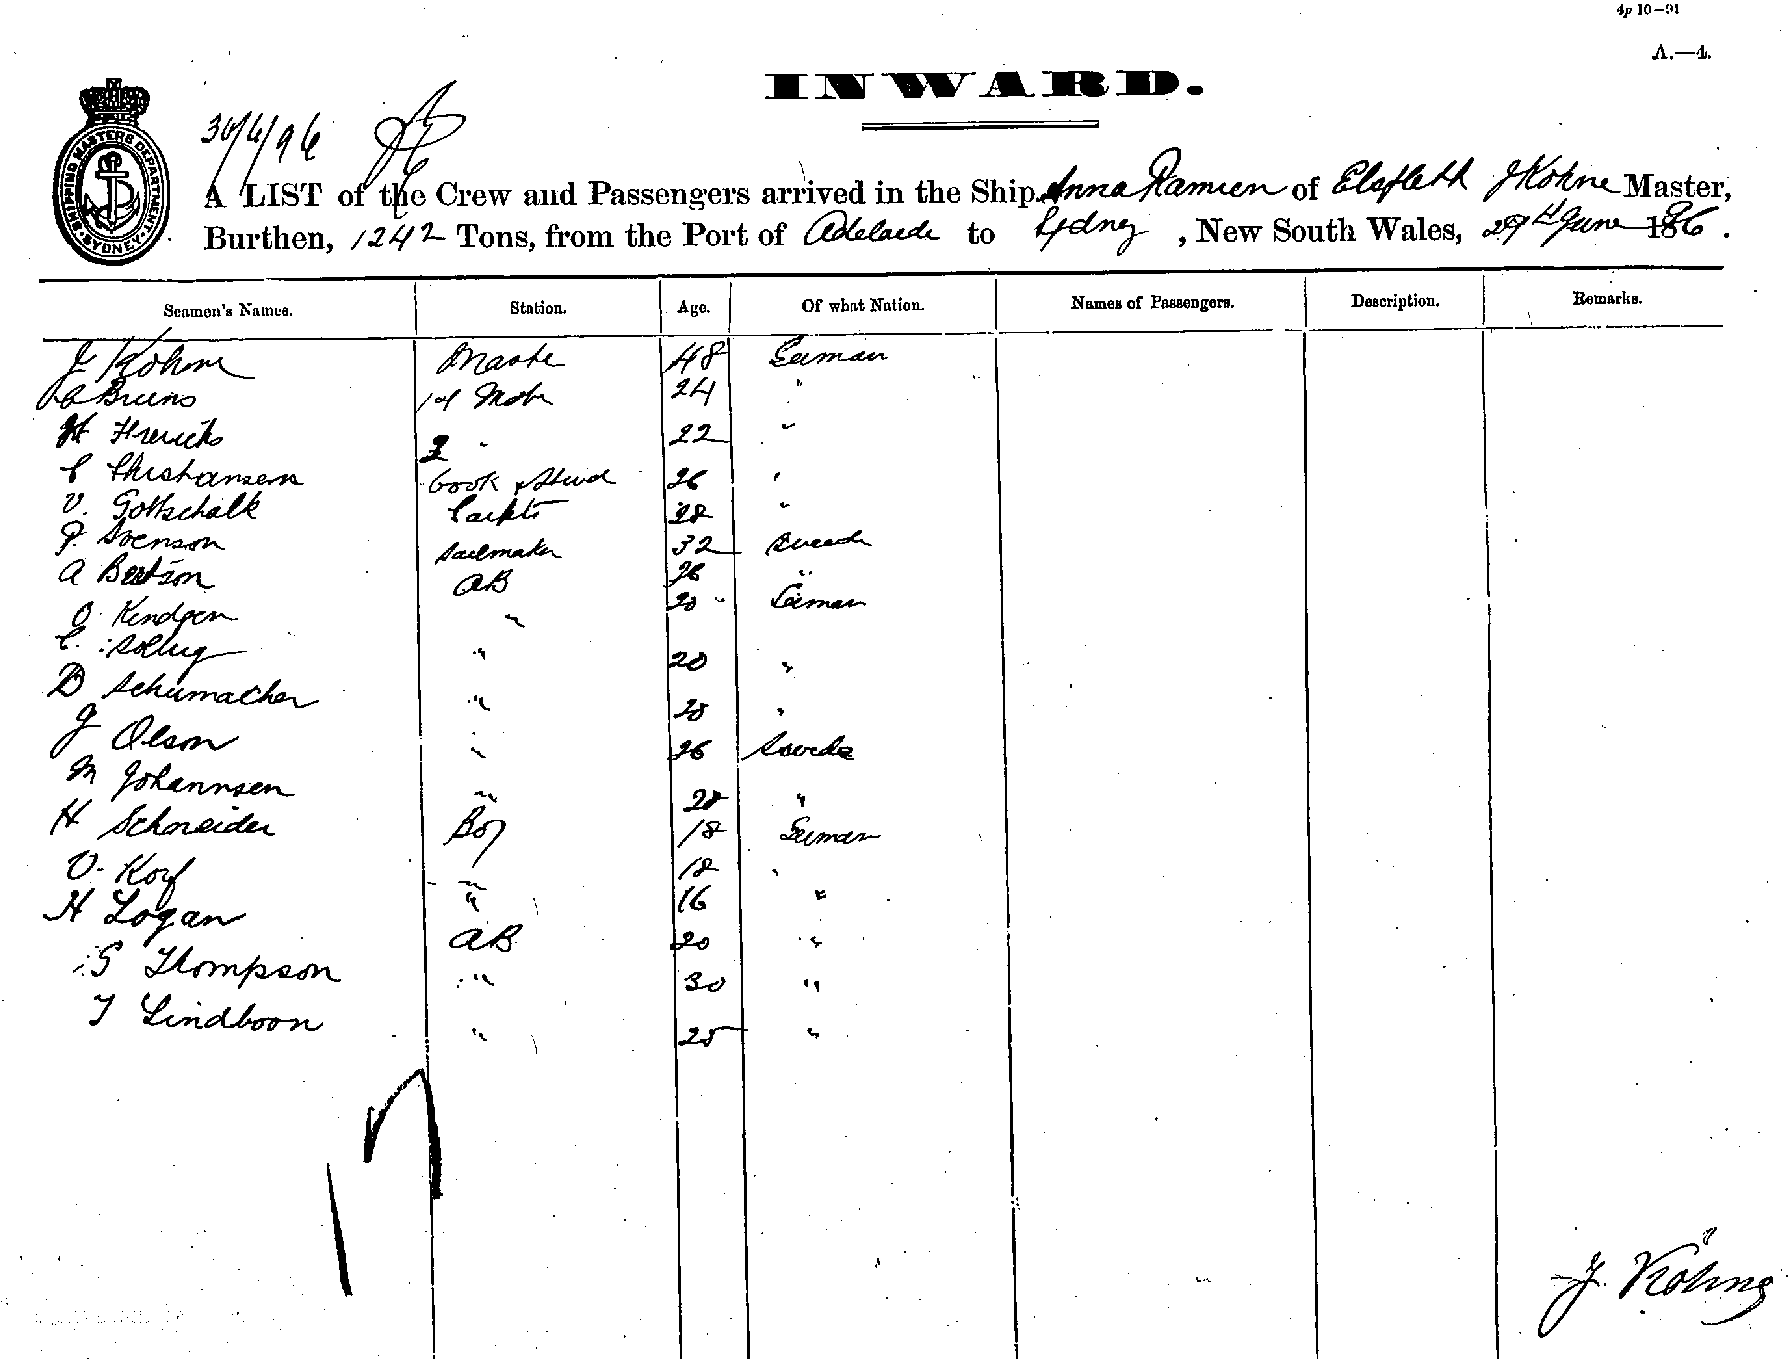 4p 10—91
A.—4.
INWARD.
SHIPPING MASTERS DEPARTMENT SYDNEY
30/6/96
A LIST of the Crew and Passengers arrived in the Ship Anna Ramien of Elsfleth J Kohne Master,
Burthen, 1242 Tons, from the Port of Adelaide to Sydney, New South Wales, 29th June 1896.
Seamen's Names. Station. Age. Of what Nation. Names of Passengers. Description. Remarks.
J Kohne Master 48 German
Bruns 1st Mate 24 "
H Frerichs 2 " 22 "
C Christiansen Cook & Stewd 26 "
V. Gottschalk 28 "
P Svenson Sailmaker 32 Swede
A AB 26 "
O Kindgen " 20 German
C. " 20 "
D Schumacher " 20 "
J Olson " 26 Swede
M Johannsen " 28 "
H Schneider Boy 18 German
O. Korf " 18 "
H Logan " 16 "
G Thompson AB 20 "
T Lindboon " 30 "
" 25 "
17
J. Köhne